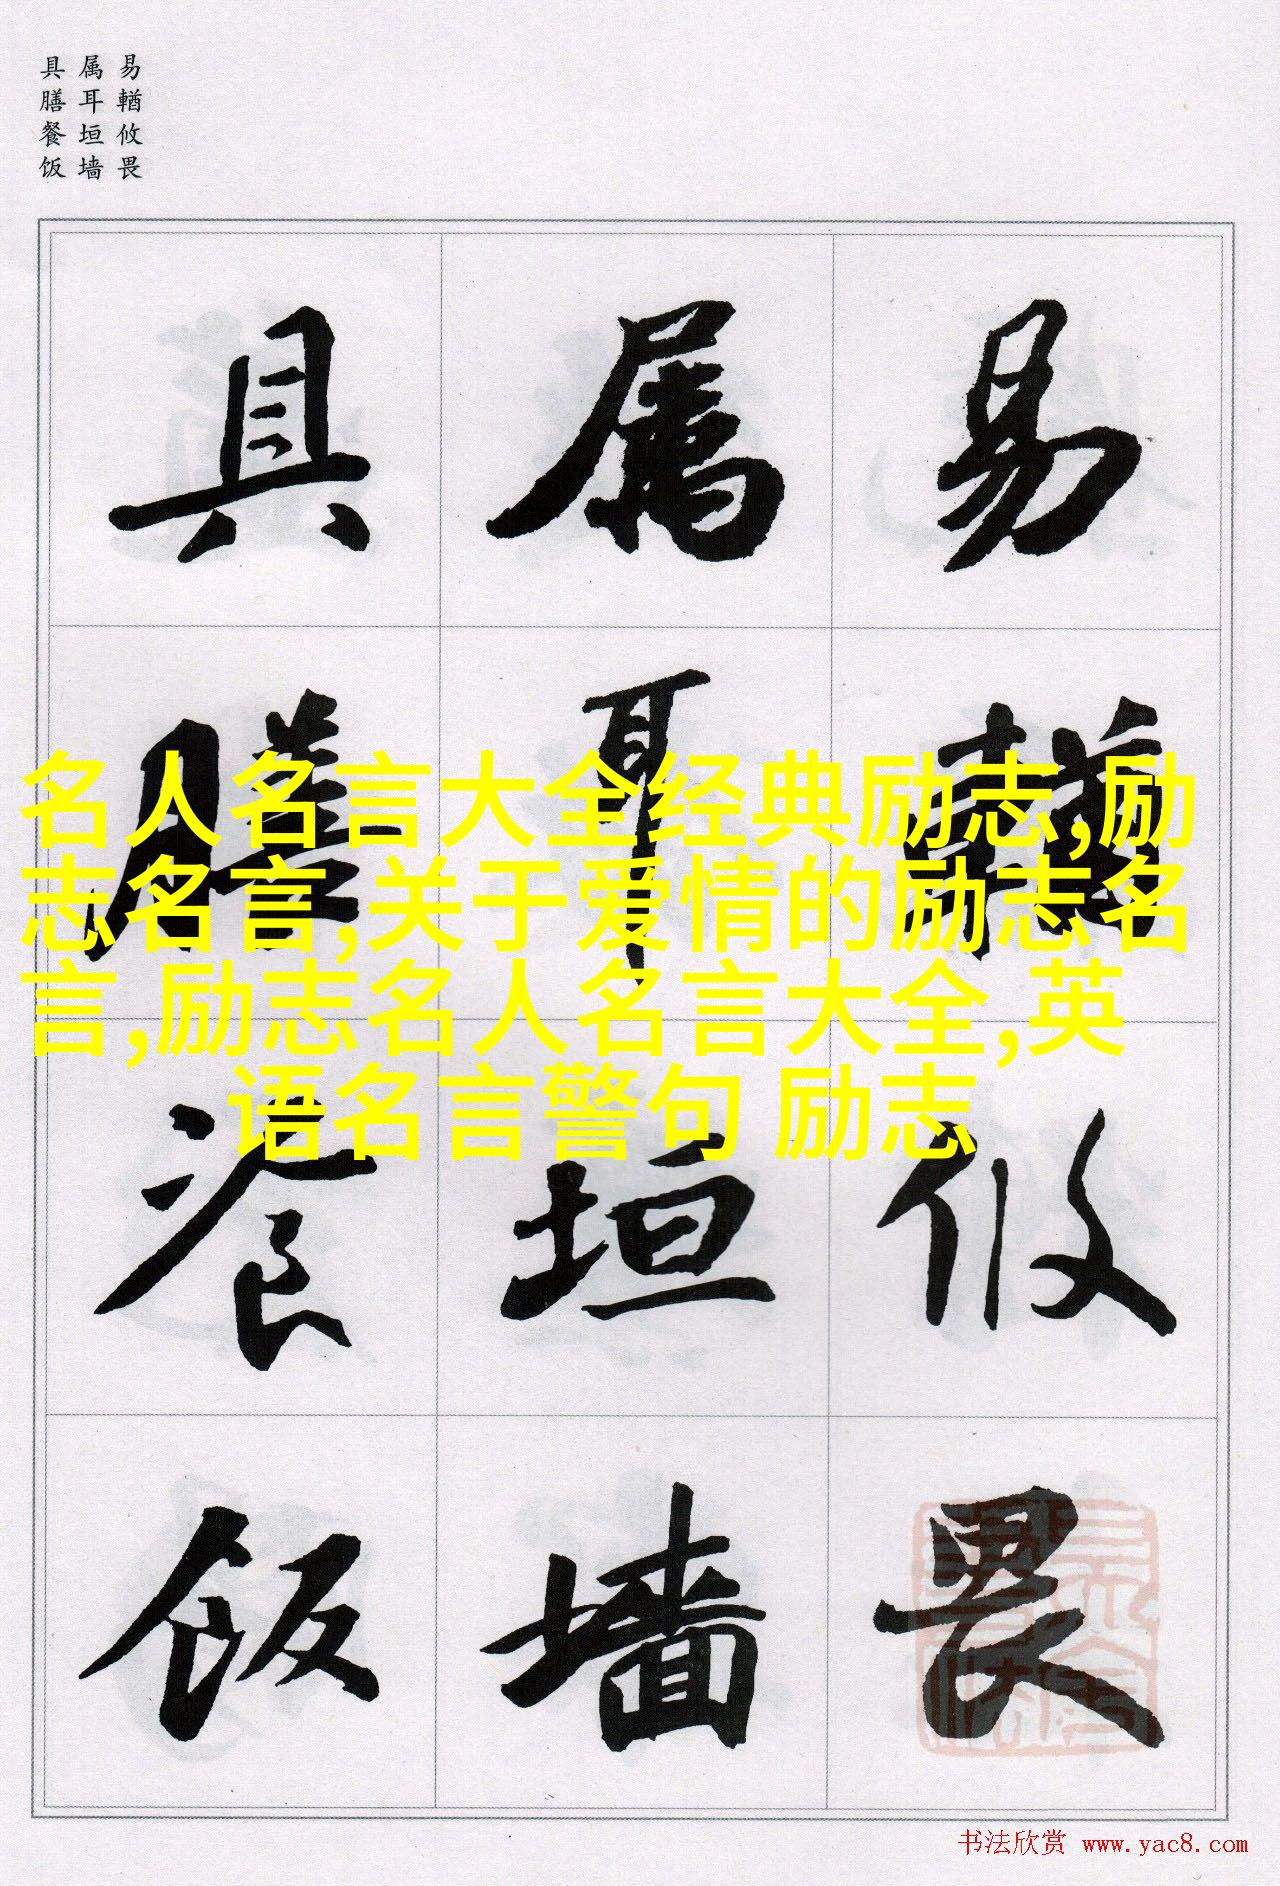 易輶攸畏
属耳垣墙
具膳餐饭
易輶攸畏
属耳垣墙
具膳餐饭
名人名言大全经典励志,励
志名言,关于爱情的励志名
言,励志名人名言大全,英
语名言警句 励志
书法欣赏 www.yac8.com